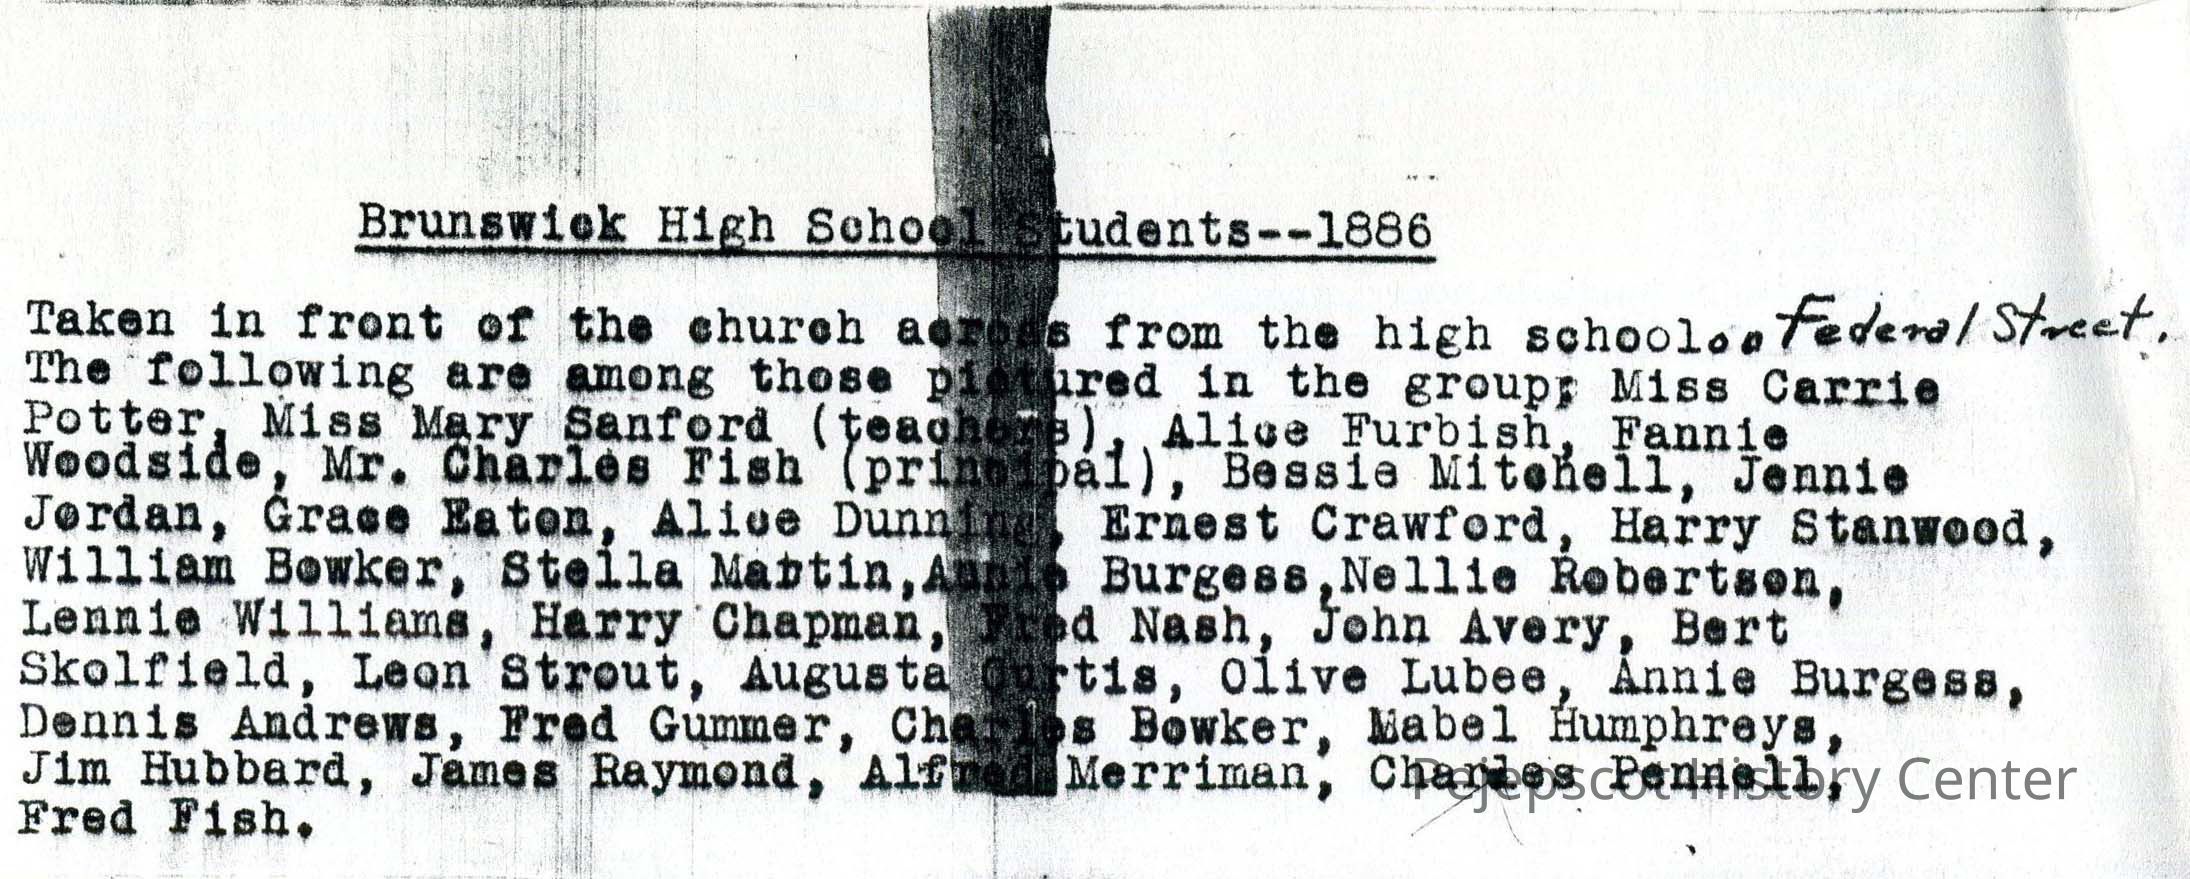 Brunswick High School Students--1886
Taken in front of the church across from the high school.. Federal Street.
The following are among those pictured in the group; Miss Carrie
Potter, Miss Mary Sanford (teachers), Alice Furbish, Fannie
Woodside, Mr. Charles Fish (principal), Bessie Mitchell, Jennie
Jordan, Grace Eaton, Alice Dunning, Ernest Crawford, Harry Stanwood,
William Bowker, Stella Martin,Annie Burgess,Nellie Robertson,
Lennie Williams, Harry Chapman, Fred Nash, John Avery, Bert
Skolfield, Leon Strout, Augusta Curtis, Olive Lubee, Annie Burgess,
Dennis Andrews, Fred Gummer, Charles Bowker, Mabel Humphreys,
Jim Hubbard, James Raymond, Alfred Merriman, Charles Pennell,
Fred Fish.
Pejepscot History Center